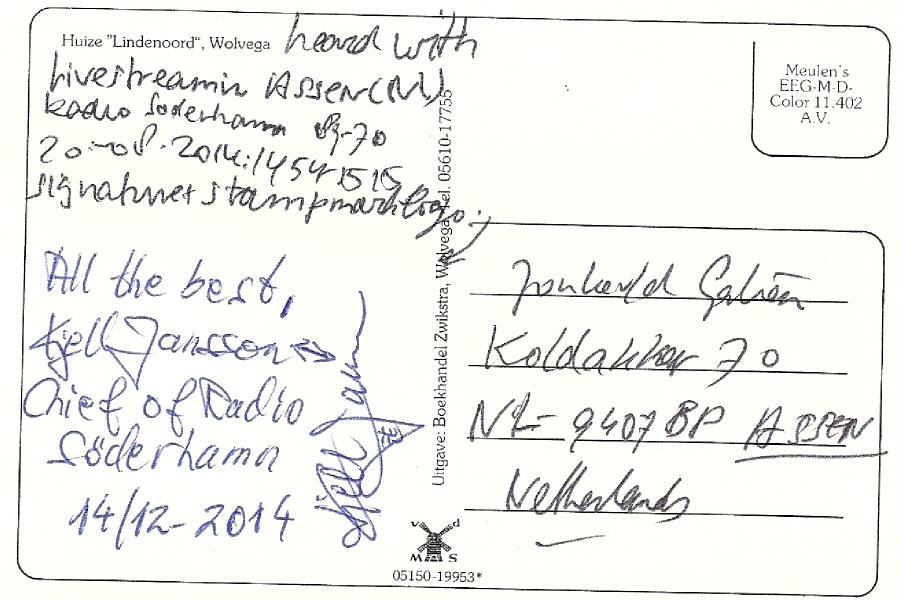 Huize "Lindenoord", Wolvega heard with
Livestreamin ASSEN (NL)
Radio Söderhamn
20-08-2014: 1454-1515
signature+stamp
All the best,
Kjell Jansson
Chief of Radio
Söderhamn
14/12-2014
Kjell
Uitgave: Boekhandel Zwikstra, Wolvega, tel. 05610-17755
v d
M S
05150-19953*
Meulen's
EEG-M-D-
Color 11.402
A.V.
Koldakker 70
NL- 9407 BP ASSEN
Netherlands